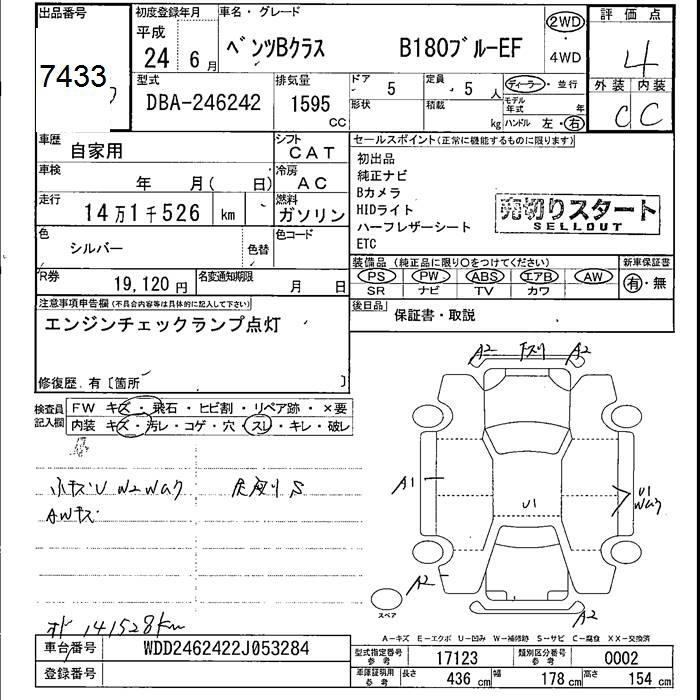 出品番号
7433
初度登録年月
平成
24 6月
車名・グレード
ベンツBクラス B180ブルーEF
2WD
4WD
評価点
4
外装 内装
C C
型式
DBA-246242
排気量
1595
CC
ドア
5
定員
5人
形状
積載
kg
ディーラー・並行
モデル年式 年
ハンドル 左・右
車歴
自家用
シフト
CAT
車検
年 月( 日)
冷房
AC
走行
14万1千526 km
燃料
ガソリン
色
シルバー
色替
色コード
R券
19,120円
名変通知期限
月 日
セールスポイント(正常に機能するものに限ります)
初出品
純正ナビ
Bカメラ
HIDライト
ハーフレザーシート
ETC
売切りスタート
SELLOUT
装備品(純正品に限り○をつけてください)
PS PW ABS エアB AW
SR ナビ TV カワ
新車保証書
有・無
後日品
保証書・取説
注意事項申告欄(不具合内容等は具体的に記入して下さい)
エンジンチェックランプ点灯
修復歴.有〔箇所 〕
検査員記入欄
FW キズ・飛石・ヒビ割・リペア跡・×要
内装 キズ・汚レ・コゲ・穴・スレ・キレ・破レ
小キズU W2Wムク
AWキズ
A2 下スリ A2
A1
U1
U1
A2
A2
スペア
オド 141528km
A-キズ E-エクボ U-凹み W-補修跡 S-サビ C-腐食 XX-交換済
車台番号
WDD2462422J053284
登録番号
型式指定番号
参考
17123
類別区分番号
参考
0002
車庫証明用
参考
長さ 436 cm
幅 178 cm
高さ 154 cm